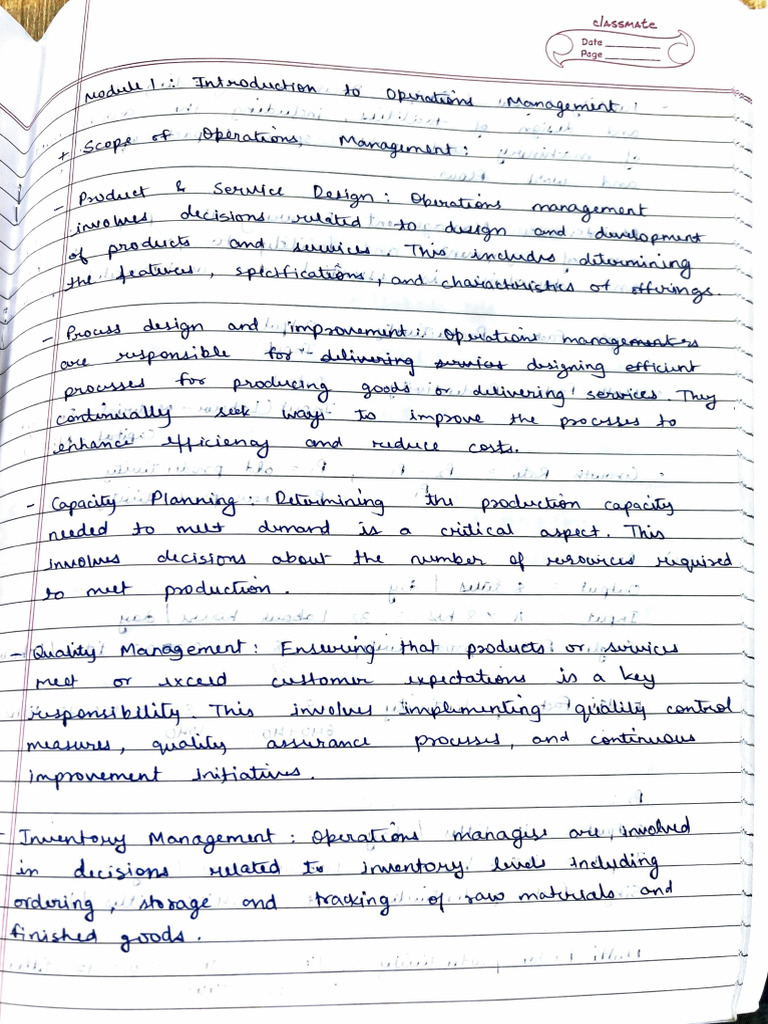 classmate
Date
Page
Module 1 : Introduction to Operations Management :
+ Scope of Operations Management :
- Product & Service Design : Operations management
involves decisions related to design and development
of products and services. This includes determining
the features, specifications, and characteristics of offerings.
- Process design and improvement : Operations managers
are responsible for delivering services designing efficient
processes for producing goods or delivering services. They
continually seek ways to improve the processes to
enhance efficiency and reduce costs.
- Capacity Planning : Determining the production capacity
needed to meet demand is a critical aspect. This
involves decisions about the number of resources required
to meet production.
- Quality Management : Ensuring that products or services
meet or exceed customer expectations is a key
responsibility. This involves implementing quality control
measures, quality assurance processes, and continuous
improvement initiatives.
- Inventory Management : Operations managers are involved
in decisions related to inventory levels including
ordering, storage and tracking of raw materials and
finished goods.